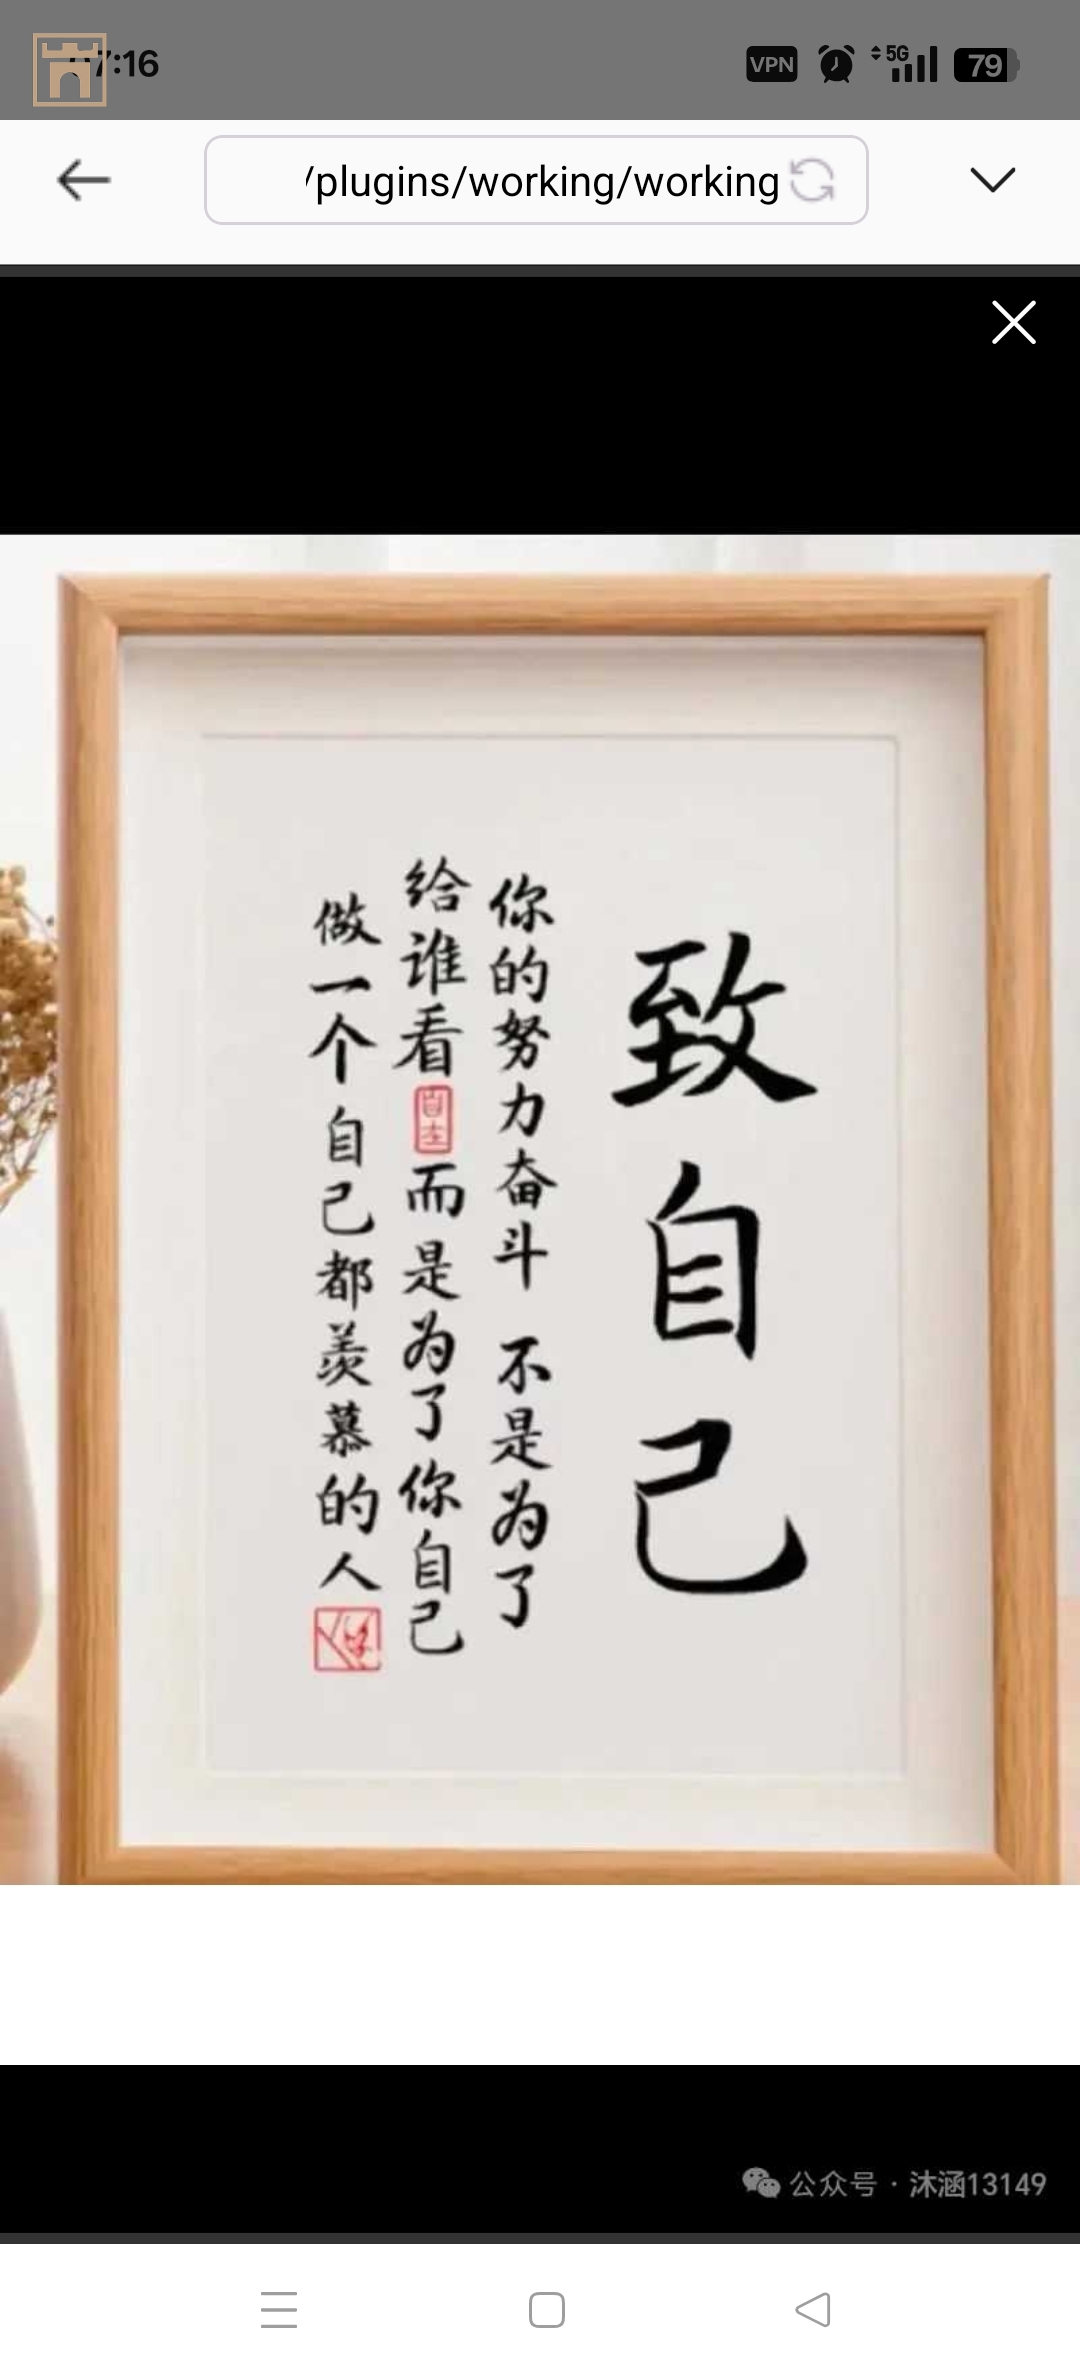 7:16
VPN
5G
79
/plugins/working/working
致自己
你的努力奋斗 不是为了
给谁看 自在 而是为了你自己
做一个自己都羡慕的人
公众号 · 沐涵13149